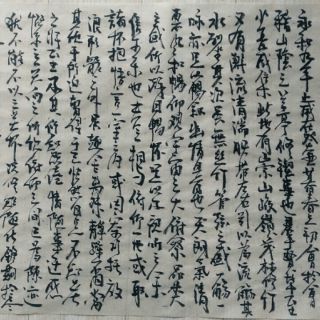 永和九年歲在癸丑暮春之初會於會
稽山陰之蘭亭修禊事也群賢畢至
少長咸集此地有崇山峻嶺茂林修竹
又有清流激湍映帶左右引以為流觴曲
水列坐其次雖無絲竹管弦之盛一觴一
詠亦足以暢敘幽情是日也天朗氣清
惠風和暢仰觀宇宙之大俯察品類之
盛所以遊目騁懷足以極視聽之娛
信可樂也夫人之相與俯仰一世或取
諸懷抱悟言一室之內或因寄所託放
浪形骸之外雖趣舍萬殊靜躁不同當
其欣於所遇暫得於己快然自足不知老
之將至及其所之既倦情隨事遷感
慨係之矣向之所欣俯仰之間已為陳迹
猶不能不以之興懷況修短隨化終期於盡